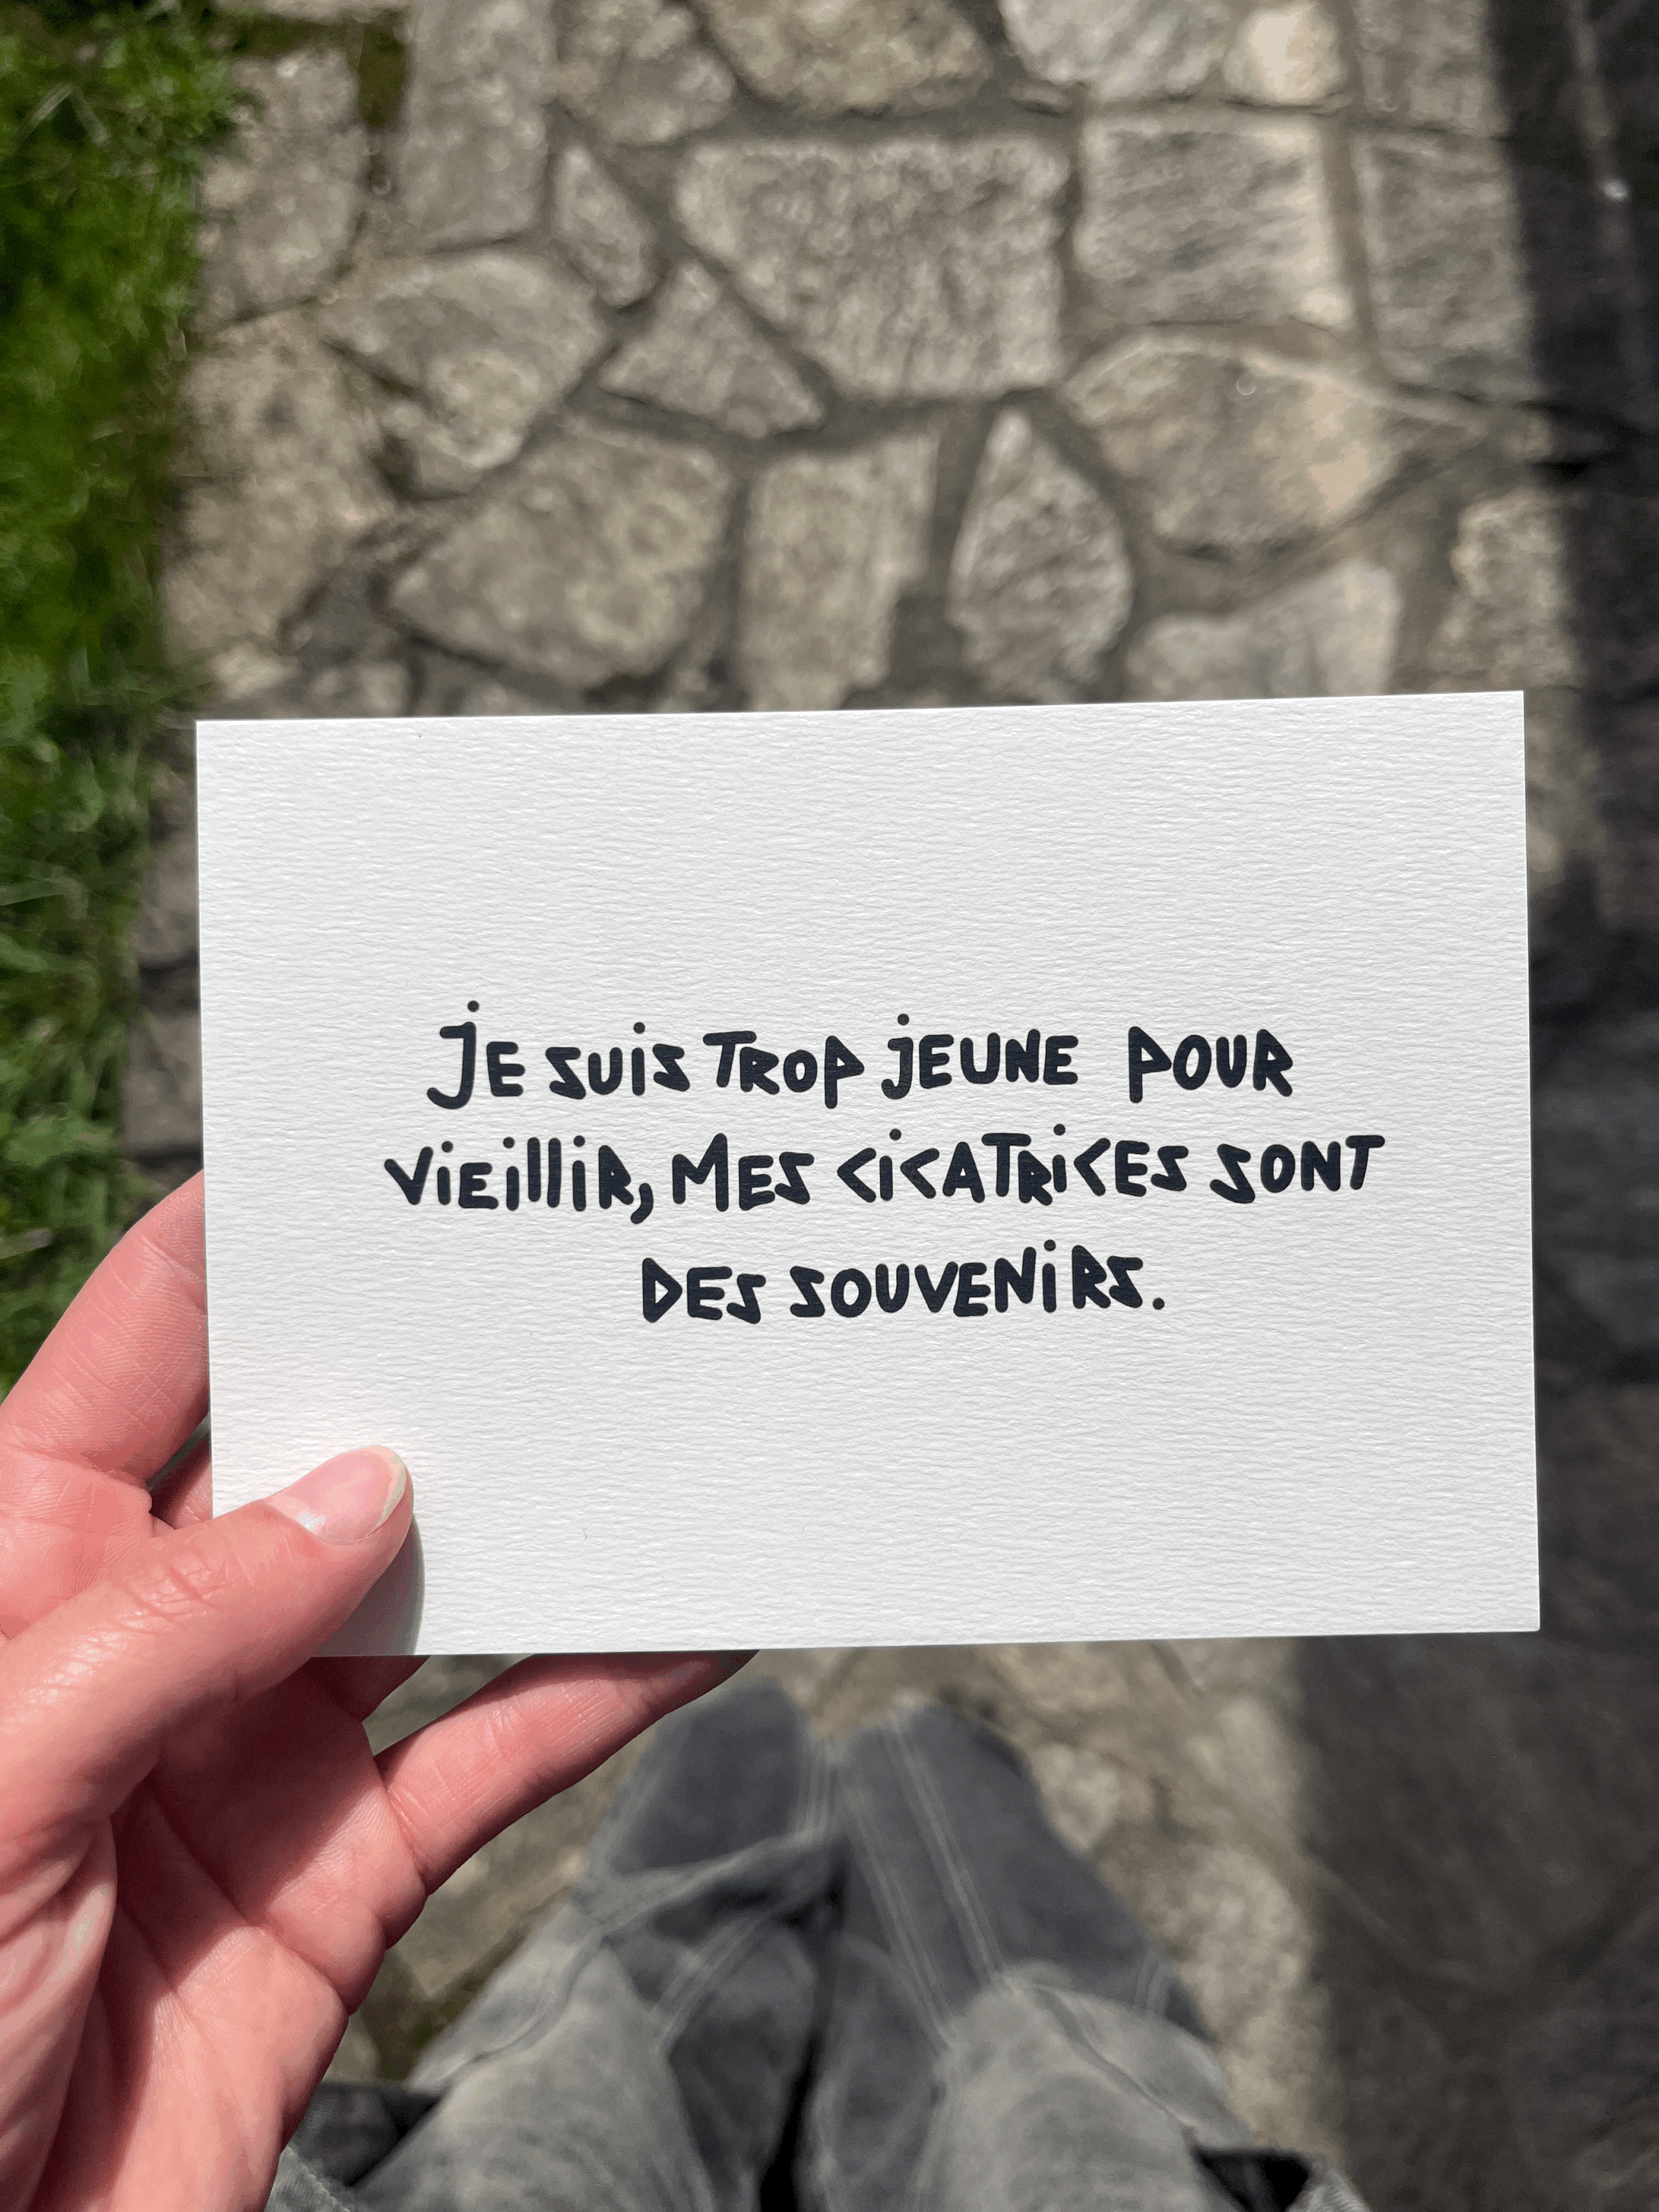 JE SUIS TROP JEUNE POUR
VIEILLIR, MES CICATRICES SONT
DES SOUVENIRS.